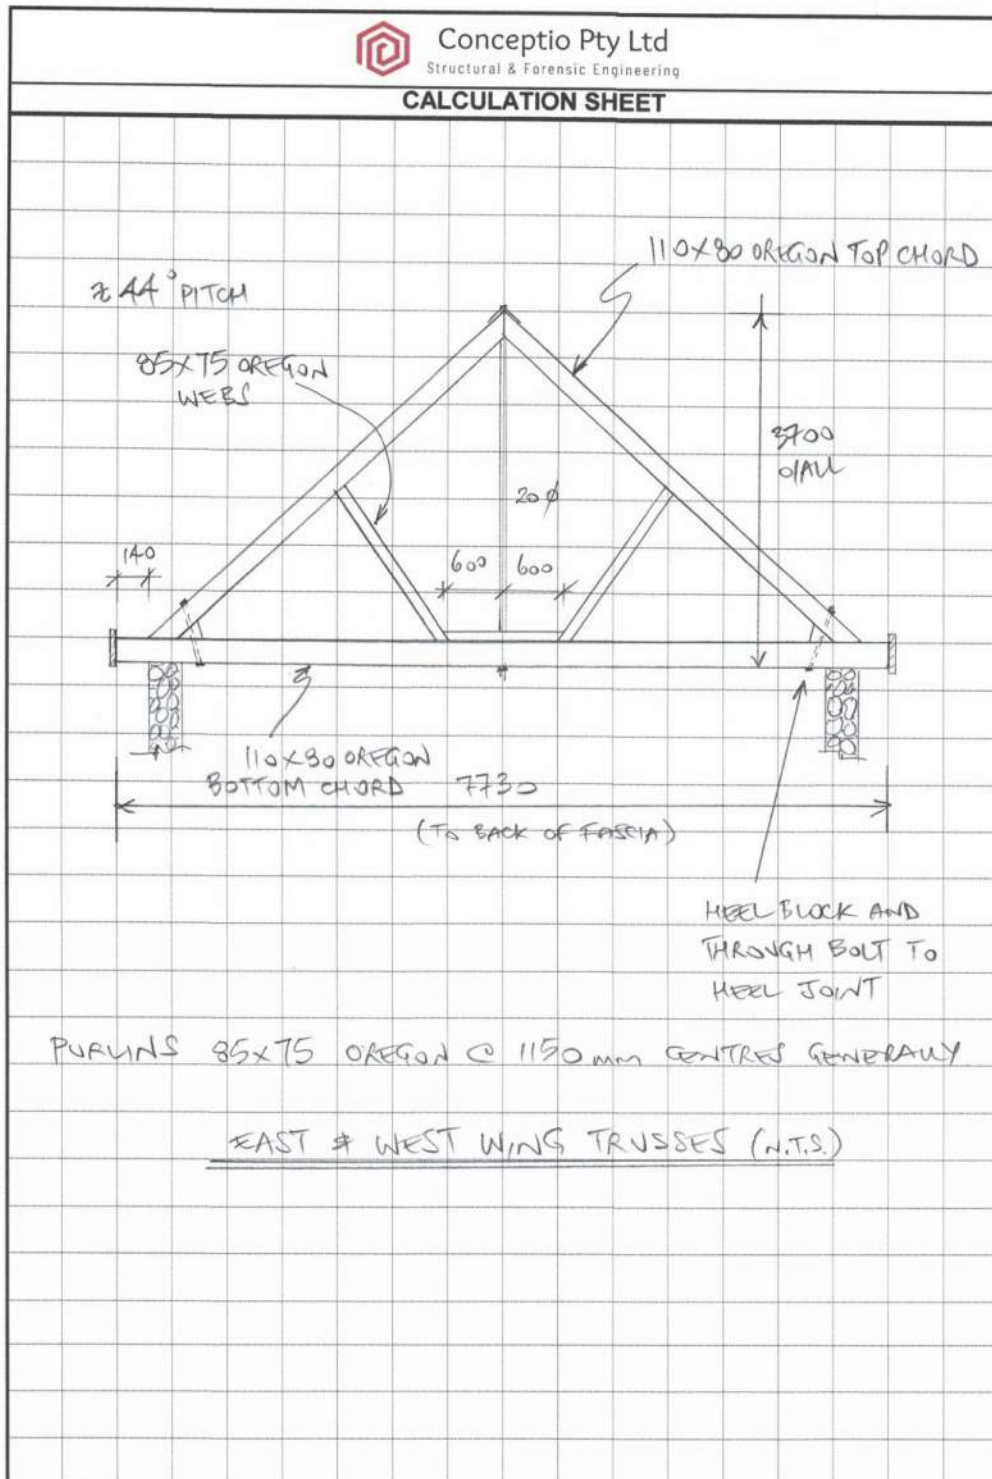 Conceptio Pty Ltd
Structural & Forensic Engineering
CALCULATION SHEET
110X80 OREGON TOP CHORD
≈ 44° PITCH
85X75 OREGON
WEBS
3700
O/ALL
20 ø
140
600 600
110X80 OREGON
BOTTOM CHORD 7730
(TO BACK OF FASCIA)
HEEL BLOCK AND
THROUGH BOLT TO
HEEL JOINT
PURLINS 85x75 OREGON @ 1150mm CENTRES GENERALLY
EAST & WEST WING TRUSSES (N.T.S.)